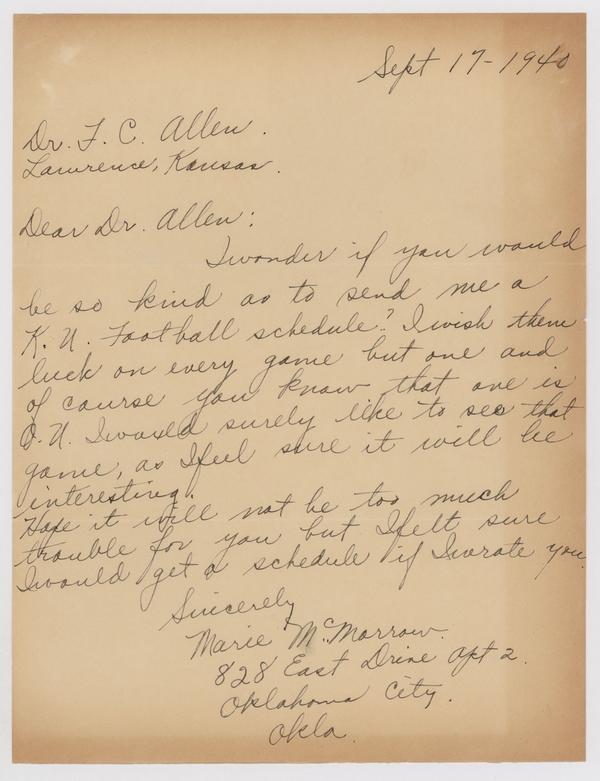 Sept 17-1940
Dr. F. C. Allen.
Lawrence, Kansas.
Dear Dr. Allen:
I wonder if you would
be so kind as to send me a
K. U. Football schedule? I wish them
luck on every game but one and
of course you know that one is
O. U. I would surely like to see that
game, as I feel sure it will be
interesting.
Hope it will not be too much
trouble for you but I felt sure
I would get a schedule if I wrote you.
Sincerely
Marie McMorrow.
828 East Drive Apt 2.
Oklahoma City.
Okla.